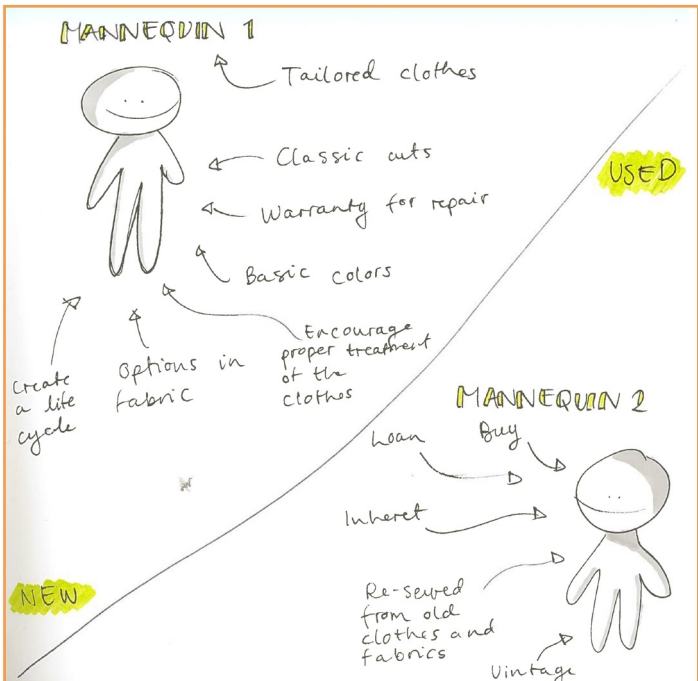 MANNEQUIN 1
Tailored clothes
Classic cuts
Warranty for repair
Basic colors
Encourage
proper treatment
of the
clothes
Options in
fabric
Create
a life
cycle
USED
NEW
MANNEQUIN 2
Loan
Buy
Inheret
Re-sewed
from old
clothes and
fabrics
Vintage